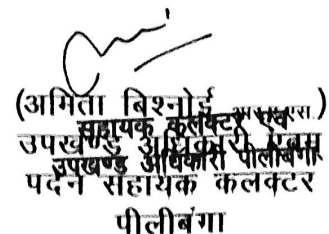 (अमिता बिश्नोई आर.ए.एस.)
सहायक कलक्टर एवं
उपखण्ड अधिकारी एवम
उपखण्ड अधिकारी पीलीबंगा
पदेन सहायक कलक्टर
पीलीबंगा